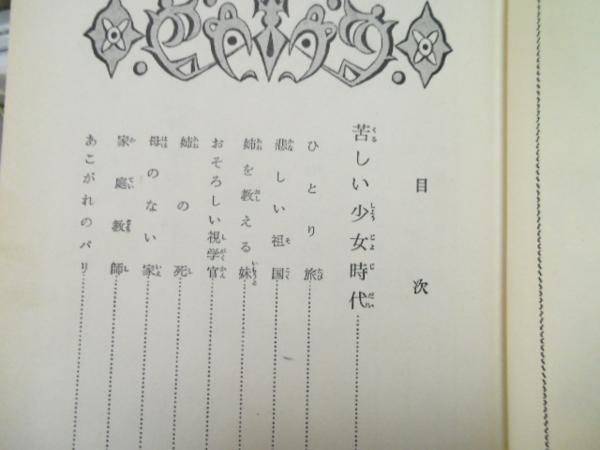 目次
苦しい少女時代
ひとり旅
悲しい祖国
姉を教える妹
おそろしい視学官
姉の死
母のない家
家庭教師
あこがれのパリ